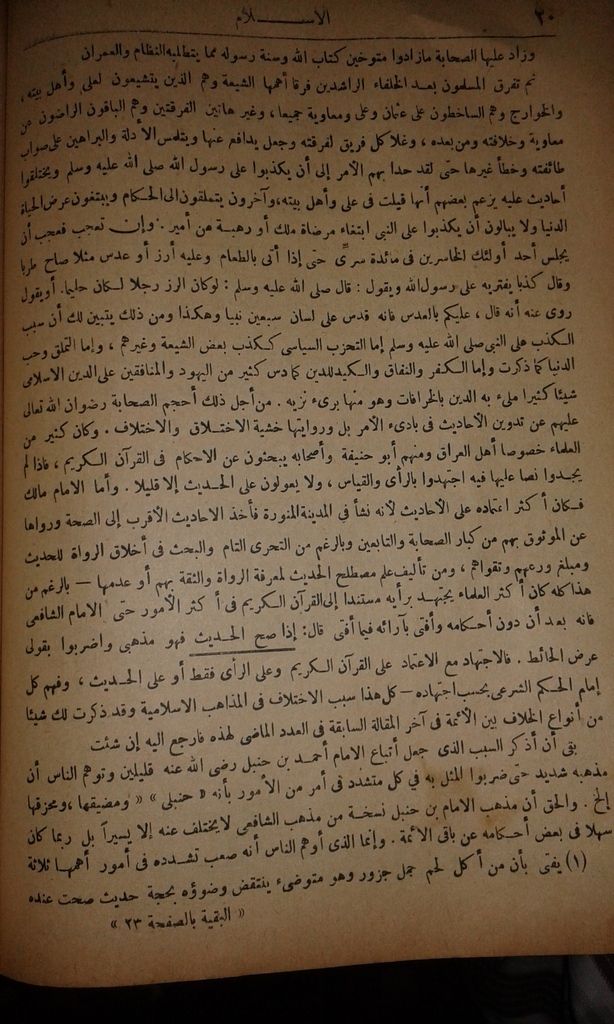 ٢٠ الاســـلام
وزاد عليها الصحابة مازادوا متوخين كتاب الله وسنة رسوله مما يتطلبه النظام والعمران
ثم تفرق المسلمون بعد الخلفاء الراشدين فرقا أهمها الشيعة وهم الذين يتشيعون لعلى وأهل بيته ،
والخوارج وهم الساخطون على عثمان وعلى ومعاوية جميعا، وغير هاتين الفرقتين وهم الباقون الراضون عن
معاوية وخلافته ومن بعده ، وغلا كل فريق لفرقته وجعل يدافع عنها ويتلمس الأدلة والبراهين على صواب
طائفته وخطأ غيرها حتى لقد حدا بهم الأمر إلى أن يكذبوا على رسول الله صلى الله عليه وسلم ويختلقوا
أحاديث عليه يزعم بعضهم أنها قيلت فى على وأهل بيته، وآخرون يتملقون الى الحكام ويبتغون عرض الحياة
الدنيا ولا يبالون أن يكذبوا على النبى ابتغاء مرضاة ملك أو رهبة من أمير . وإن تعجب فعجب أن
يجلس أحد أولئك الخاسرين فى مائدة سرىّ حتى إذا أتى بالطعام وعليه أرز أو عدس مثلا صاح طربا
وقال كذبا يفتريه على رسول الله ويقول : قال صلى الله عليه وسلم : لو كان الرز رجلا لكان حليما. أويقول
روى عنه أنه قال ، عليكم بالعدس فانه قدس على لسان سبعين نبيا وهكذا ومن ذلك يتبين لك أن سبب
الكذب على النبى صلى الله عليه وسلم إما التحزب السياسى ككذب بعض الشيعة وغيرهم ، وإما التملق وحب
الدنيا كما ذكرت وإما الكفر والنفاق والكيد للدين كما دس كثير من اليهود والمنافقين على الدين الاسلامى
شيئا كثيرا ملىء به الدين بالخرافات وهو منها برىء نزيه . من أجل ذلك أحجم الصحابة رضوان الله تعالى
عليهم عن تدوين الأحاديث فى بادىء الأمر بل وروايتها خشية الاختلاق والاختلاف . وكان كثير من
العلماء خصوصا أهل العراق ومنهم أبو حنيفة وأصحابه يبحثون عن الاحكام فى القرآن الكريم ، فاذا لم
يجدوا نصا عليها فيه اجتهدوا بالرأى والقياس ، ولا يعولون على الحديث إلا قليلا . وأما الامام مالك
فكان أكثر اعتماده على الأحاديث لأنه نشأ فى المدينة المنورة فأخذ الاحاديث الأقرب إلى الصحة ورواها
عن الموثوق بهم من كبار الصحابة والتابعين وبالرغم من التحرى التام والبحث فى أخلاق الرواة للحديث
ومبلغ ورعهم وتقواهم ، ومن تأليف علم مصطلح الحديث لمعرفة الرواة والثقة بهم أو عدمها – بالرغم من
هذا كله كان أكثر العلماء يجتهد برأيه مستندا إلى القرآن الكريم فى أكثر الأمور حتى الامام الشافعى
فانه بعد أن دون أحكامه وأفتى بآرائه فيما أفتى قال: إذا صح الحديث فهو مذهبى واضربوا بقولى
عرض الحائط . فالاجتهاد مع الاعتماد على القرآن الكريم وعلى الرأى فقط أو على الحديث ، وفهم كل
إمام الحكم الشرعى بحسب اجتهاده – كل هذا سبب الاختلاف فى المذاهب الاسلامية وقد ذكرت لك شيئا
من أنواع الخلاف بين الأئمة فى آخر المقالة السابقة فى العدد الماضى لهذه فارجع اليه إن شئت
بقى أن أذكر السبب الذى جعل أتباع الامام أحمد بن حنبل رضى الله عنه قليلين وتوهم الناس أن
مذهبه شديد حتى ضربوا المثل به فى كل متشدد فى أمر من الأمور بأنه « حنبلى » « ومضيقها ،ومحزقها
إلخ . والحق أن مذهب الامام بن حنبل نسخة من مذهب الشافعى لا يختلف عنه إلا يسيرآ بل ربما كان
سهلا فى بعض أحكامه عن باقى الائمة . وإنما الذى أوهم الناس أنه صعب تشدده فى أمور أهمها ثلاثة
(١) يفتى بأن من أكل لحم جمل جزور وهو متوضىء ينتقض وضوؤه بحجة حديث صحت عنده
« البقية بالصفحة ٢٣ »